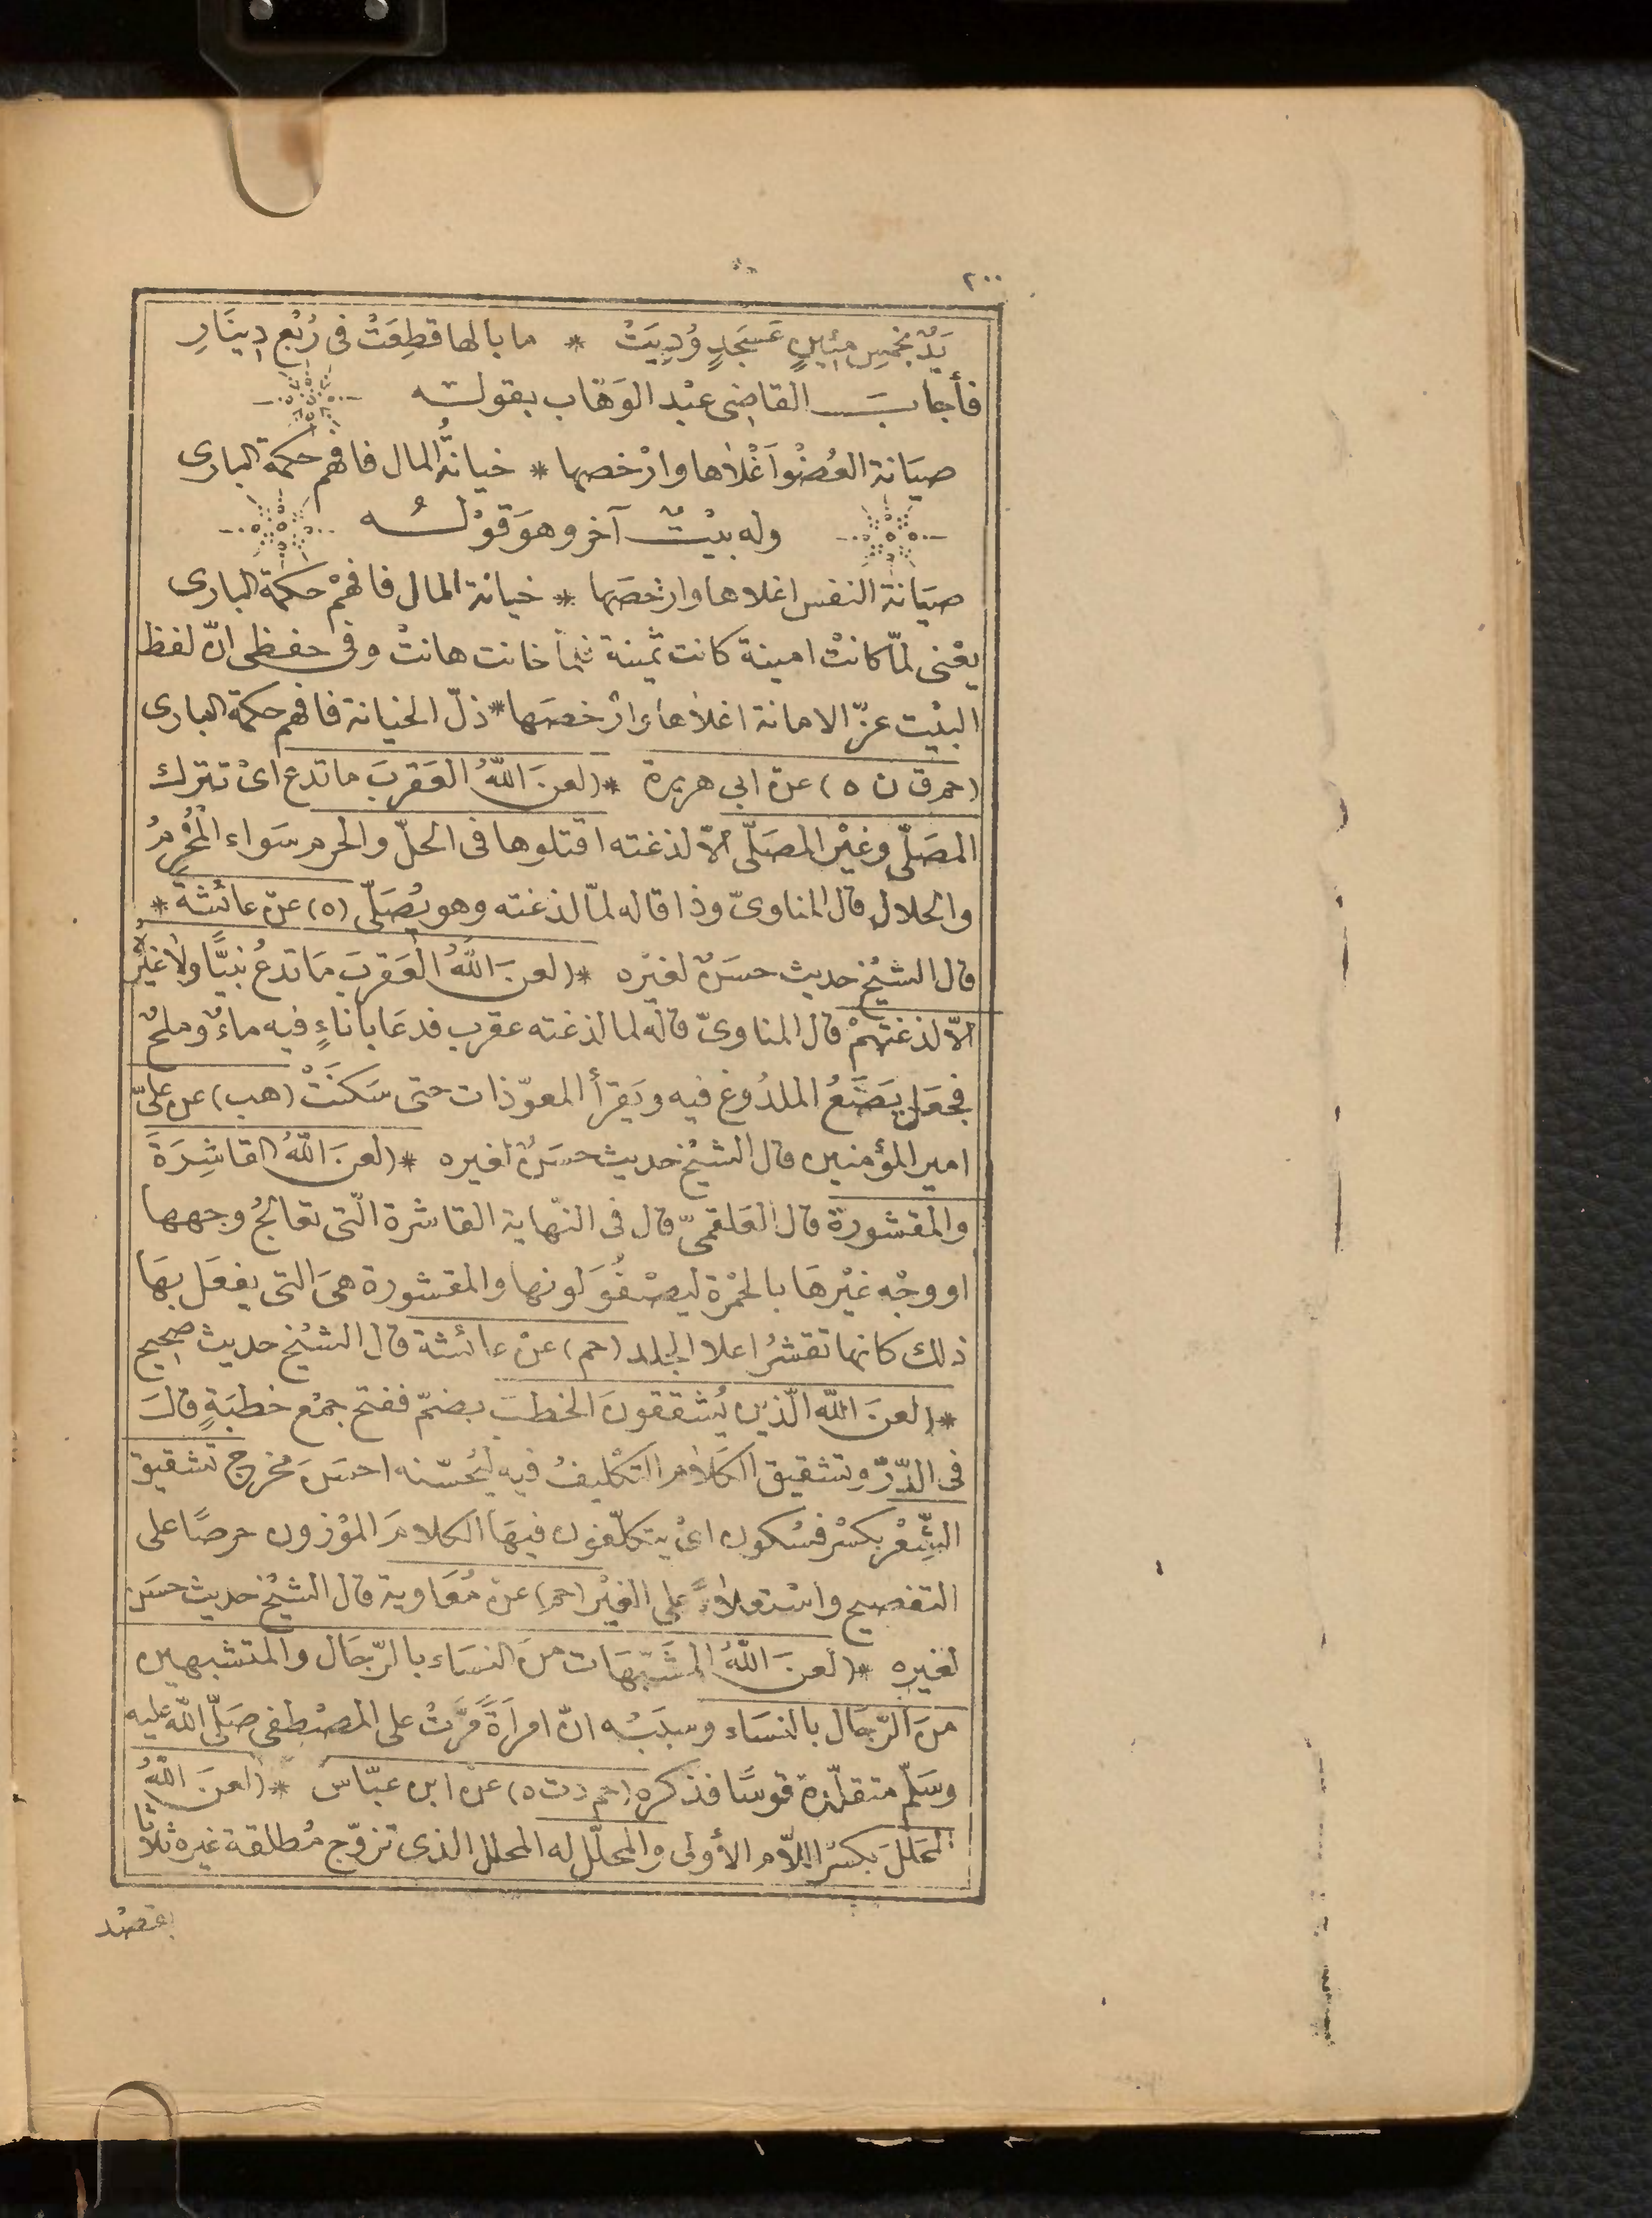 ٢٠٠
يَدٌ بخمسِ مِئينٍ عَسجَدٍ وُدِيَتْ * ما بالها قطِعَتْ في رُبْع دِينَارِ
فأجابَ القاضى عبْد الوَهّاب بقوله
صيَانة العُضْوا أغْلاها وارْخصها * خيانةُ المال فافهم حكمة البارى
وله بيْتٌ آخر وهوَ قوْلُه
صيَانة النفس اغلاها وارخصَها * خيانة المال فافهَمْ حكمة البارى
يعْنى لمّا كانتْ امينة كانت ثمينة فلما خانت هانتْ وفى حفظى انّ لفظ
البيْت عزّ الامانة اغلاها وارخصَها * ذلّ الخيانة فافهم حكمة البارى
(حم ق ن ٥) عن ابى هريرة * (لعنَ اللّهُ العَقربَ ما تدع اىْ تترك
المصَلّى وغيْر المصَلّى الاّ لدغته اقتلوها فى الحلّ والحرم سَواء المُحْرِمُ
والحلال قال المناوىّ وذا قاله لمّا لدغته وهو يُصَلّى (٥) عن عائشة *
قال الشيْخ حديث حسَنٌ لغيْره * (لعنَ اللّهُ العَقربَ مَا تدعُ نبيًّا ولا غيْرَهُ
الاّ لدغتهمْ قال المناوىّ قاله لما لدغته عقرب فدعَا باناءٍ فيه ماءٌ وملحٌ
فجعَل يَضَعُ الملدُوغ فيه ويَقرأ المعوّذات حتى سَكنَتْ (هب) عن علىّ
امير المؤمنين قال الشيْخ حديث حسَنٌ لغيره * (لعنَ اللّهُ القاشِرَةَ
والمقشورة قال العَلقمىّ قال فى النّهاية القاشرة الّتى تعَالجُ وجهها
او وجْه غيْرهَا بالحُمْرة ليصْفُوَ لونها والمقشورة هىَ التى يفعَل بهَا
ذلك كانها تقشرُ اعلا الجلد (حم) عنْ عائشة قال الشيْخ حديث صحيح
* (لعنَ اللّه الّذين يُشققونَ الخطبَ بضمّ ففتح جمْع خطبَةٍ قالَ
فى الدّرّ وتشقيق الكَلام التكليفُ فيه ليُحسّنه احسَنَ مخرج تشقيق
الشِّعْر بكسْر فسْكون اىْ يتكلّفون فيهَا الكلامَ الموْزون حرصًا على
التفصيح واسْتعلاءً على الغيْر (حم) عنْ مُعَاوية قال الشيْخ حديث حسَن
لغيره * (لعنَ اللّهُ المشَبّهَات منَ النسَاء بالرّجَال والمتشبهين
منَ الرّجَال بالنسَاء وسبَبُه انّ امرأةً مَرَّتْ على المصْطفى صَلّى اللّه عليه
وسَلّم متقلّدة قوسًا فذكره (حم د ت ٥) عن ابن عبّاس * (لعنَ اللّهُ
المحَللَ بكسْر اللاّم الأولى والمحلّل له المحلل الذى تزوّج مُطلقة غيره ثلاثا
بقصْد